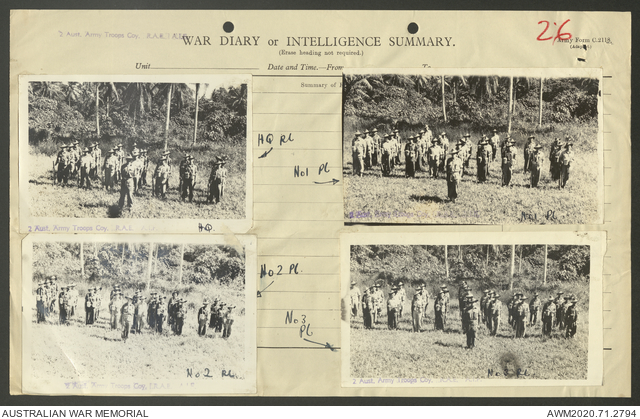 2 Aust. Army Troops Coy. R.A.E. A.I.F.
26
WAR DIARY or INTELLIGENCE SUMMARY.
Army Form C.2118
(Erase heading not required.)
Unit
Date and Time.—From
To
Summary of
HQ Pl
No1 Pl
No1 Pl
2 Aust. Army Troops Coy.
2 Aust. Army Troops Coy. R.A.E.
HQ
No 2 Pl.
No 3
Pl.
No 2 Pl
2 Aust. Army Troops Coy.
2 Aust. Army Troops Coy.
AUSTRALIAN WAR MEMORIAL
AWM2020.71.2794